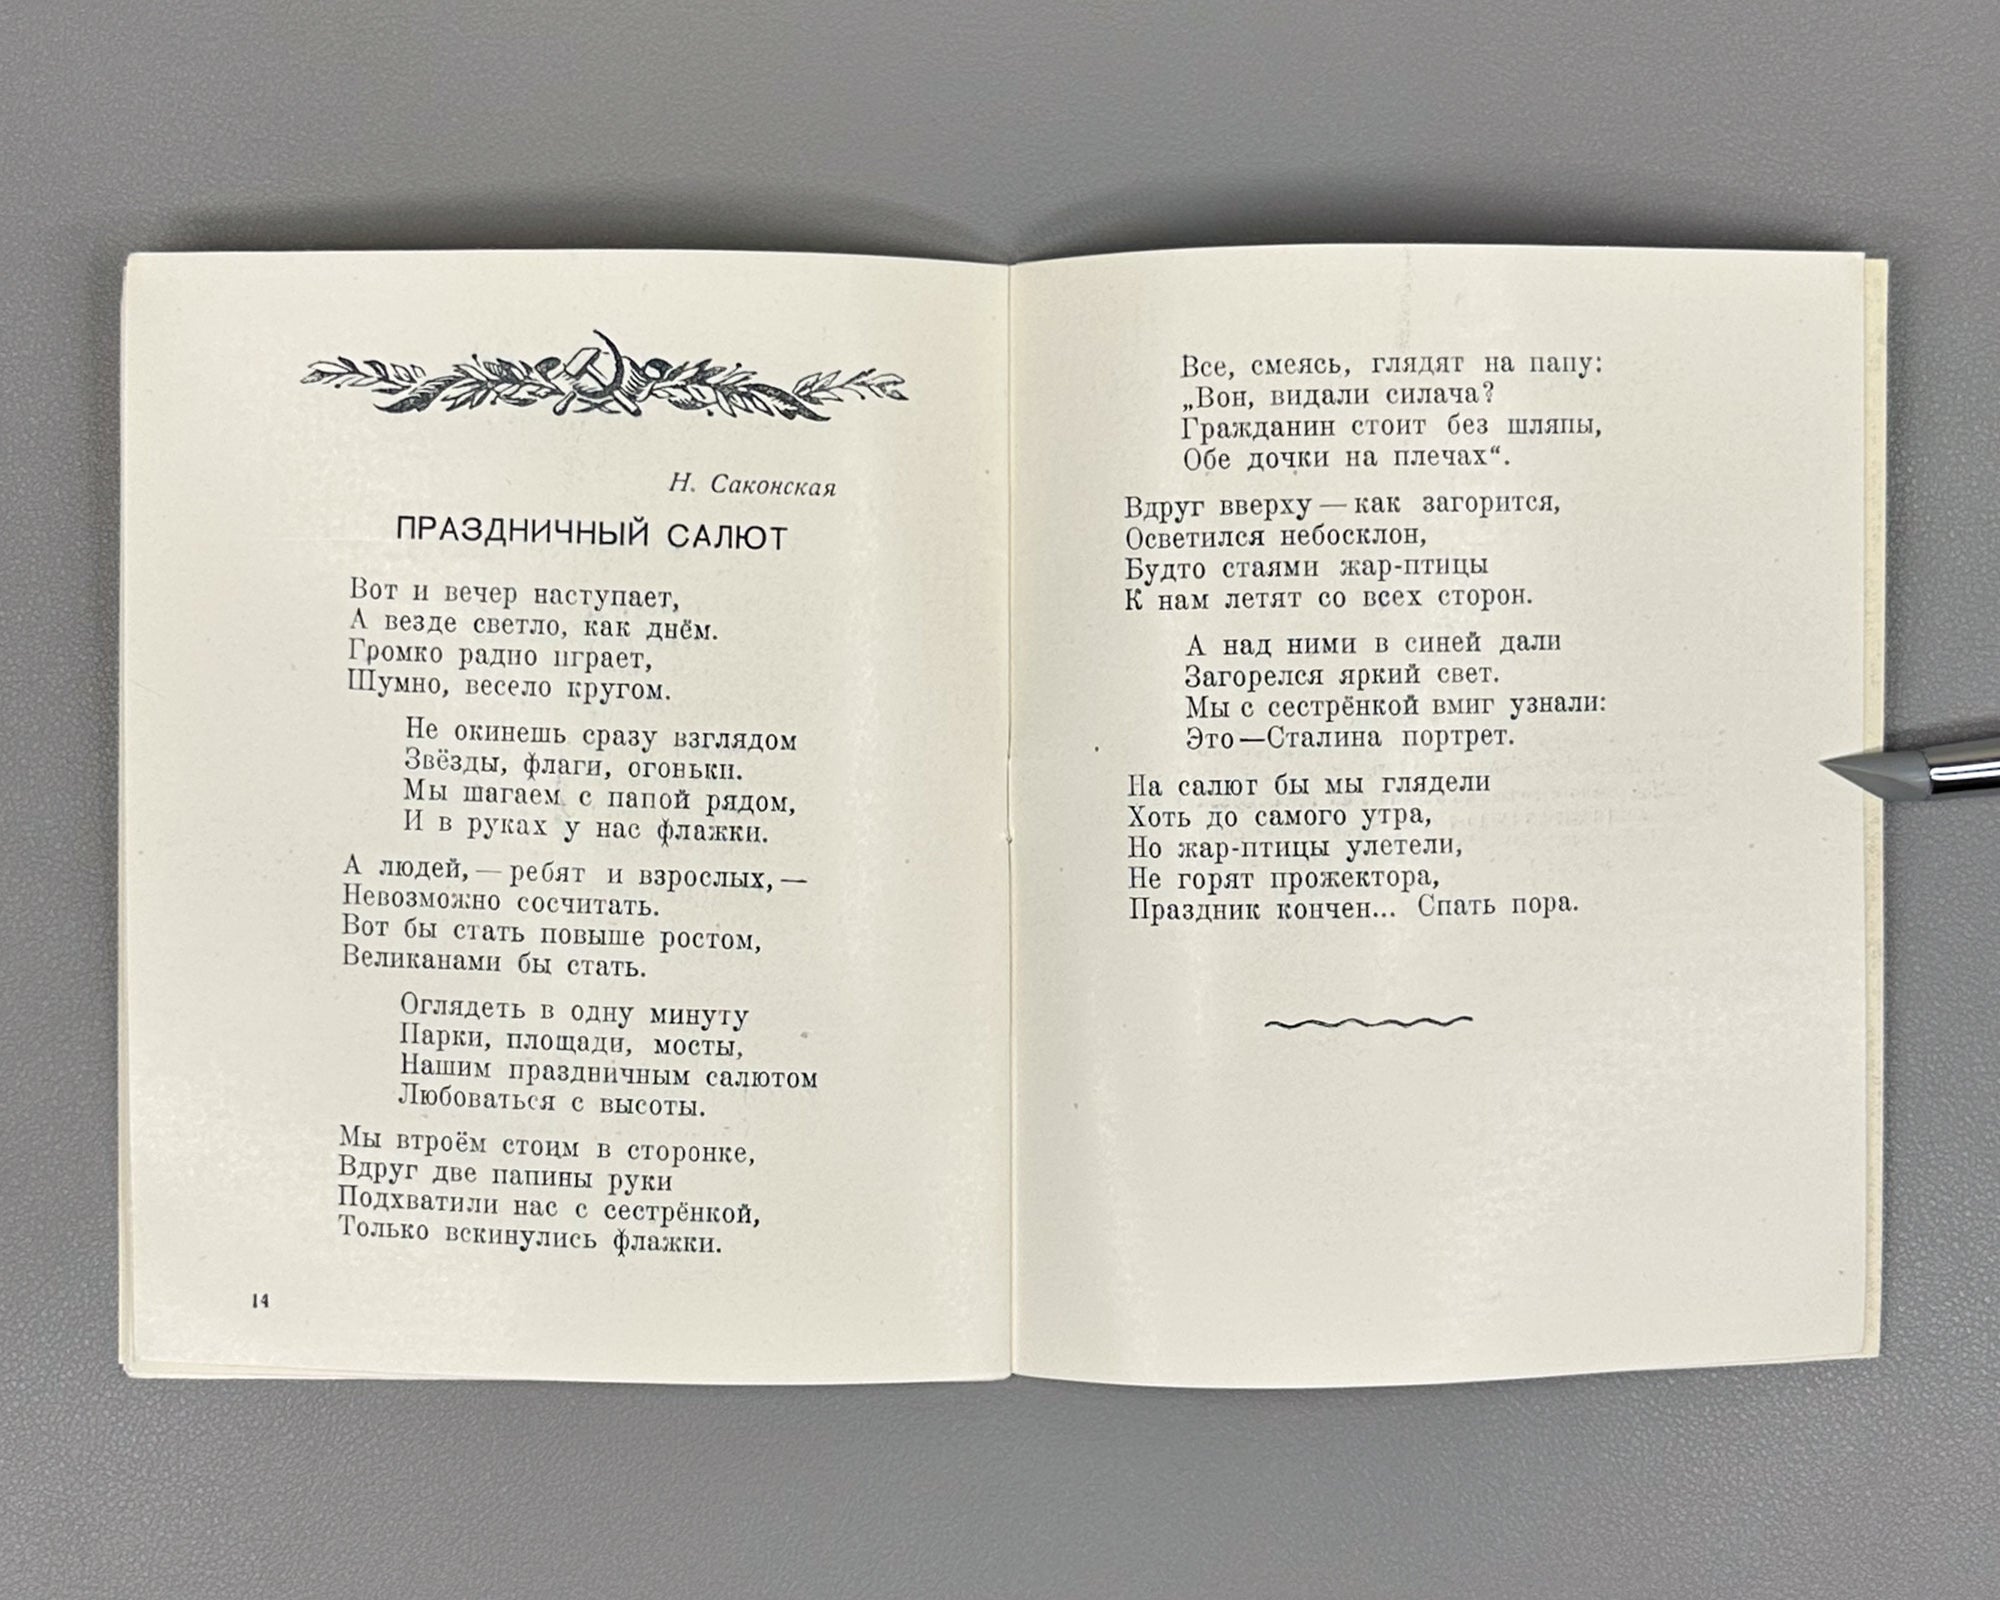 Н. Саконская
ПРАЗДНИЧНЫЙ САЛЮТ
Вот и вечер наступает,
А везде светло, как днём.
Громко радио играет,
Шумно, весело кругом.
Не окинешь сразу взглядом
Звёзды, флаги, огоньки.
Мы шагаем с папой рядом,
И в руках у нас флажки.
А людей, — ребят и взрослых, —
Невозможно сосчитать.
Вот бы стать повыше ростом,
Великанами бы стать.
Оглядеть в одну минуту
Парки, площади, мосты,
Нашим праздничным салютом
Любоваться с высоты.
Мы втроём стоим в сторонке,
Вдруг две папины руки
Подхватили нас с сестрёнкой,
Только вскинулись флажки.
14
Все, смеясь, глядят на папу:
„Вон, видали силача?
Гражданин стоит без шляпы,
Обе дочки на плечах“.
Вдруг вверху — как загорится,
Осветился небосклон,
Будто стаями жар-птицы
К нам летят со всех сторон.
А над ними в синей дали
Загорелся яркий свет.
Мы с сестрёнкой вмиг узнали:
Это — Сталина портрет.
На салют бы мы глядели
Хоть до самого утра,
Но жар-птицы улетели,
Не горят прожектора,
Праздник кончен... Спать пора.